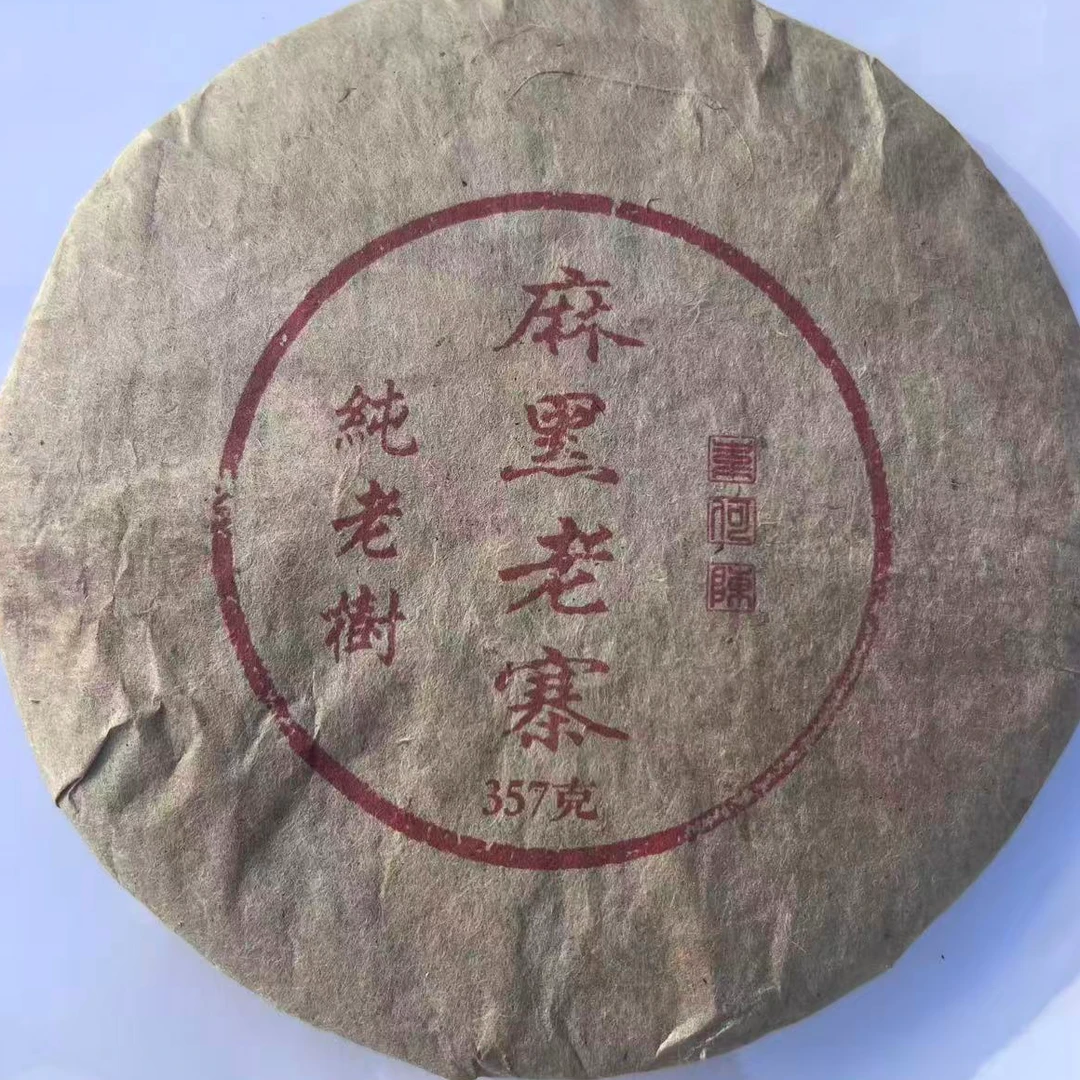 何陳
麻黑老寨
純老樹
357克